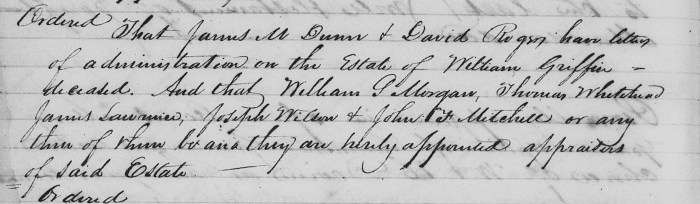 Ordered
That James M Dunn & David Rogers have letters
of administration on the Estate of William Griffin =
deceased. And that William G Morgan, Thomas Whitehead
James Lawrence, Joseph Wilson & John F Mitchell or any
three of them be and they are hereby appointed appraisers
of said Estate —
Ordered